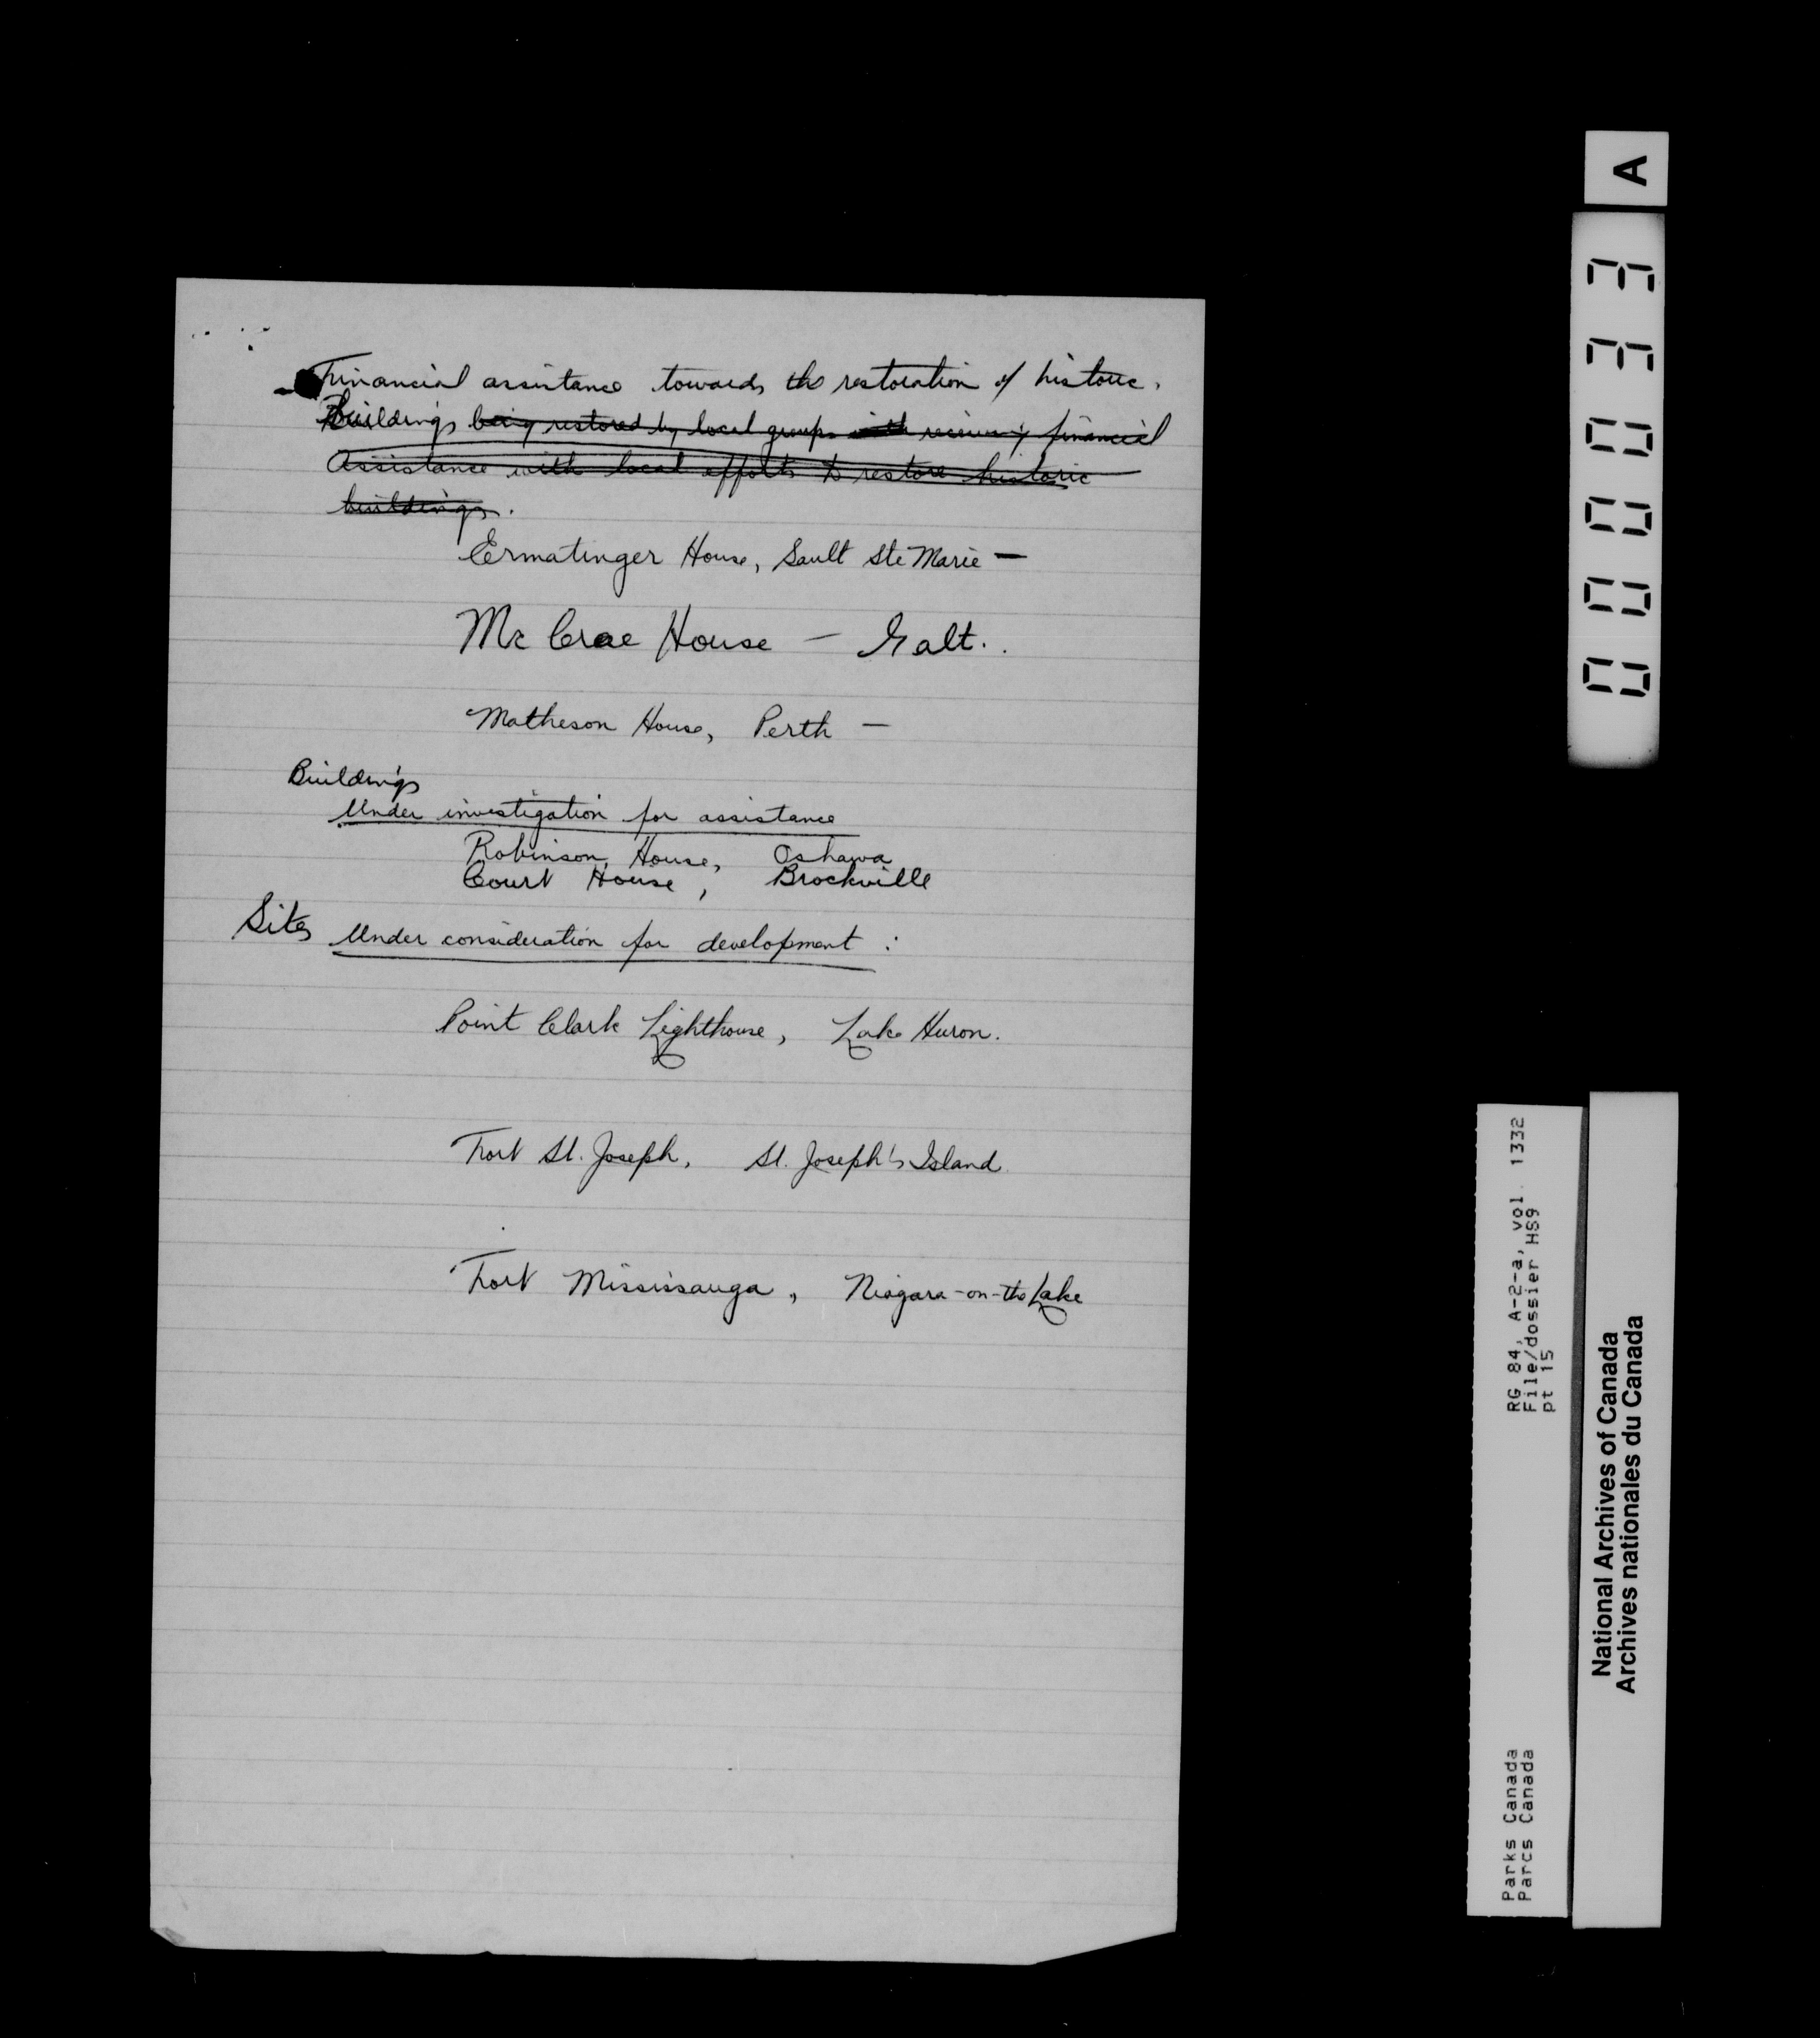 Financial assistance towards the restoration of historic
Buildings being restored by local groups with receiving financial
Assistance with local efforts to restore historic
buildings.
Ermatinger House, Sault Ste Marie —
Mc Crae House — Galt.
Matheson House, Perth —
Buildings
Under investigation for assistance
Robinson House, Oshawa
Court House, Brockville
Sites Under consideration for development :
Point Clark Lighthouse, Lake Huron.
Fort St. Joseph, St. Joseph's Island
Fort Mississauga, Niagara-on-the Lake
A
000033
RG 84, A-2-a, vol. 1332
File/dossier HS9
pt 15
Parks Canada
Parcs Canada
National Archives of Canada
Archives nationales du Canada